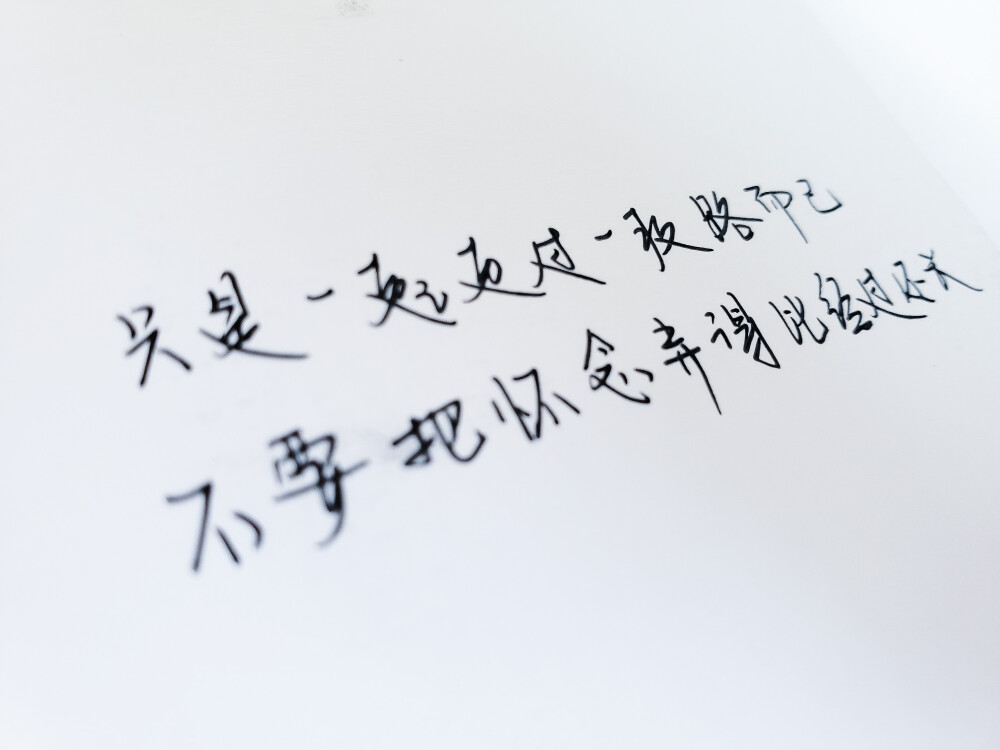 只是一起走过一段路而已
不要把怀念弄得比经过还长